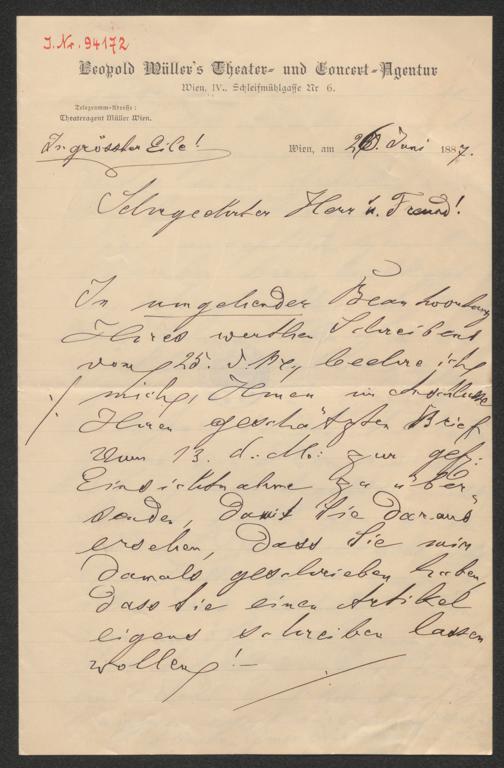 I. Nr. 94172
Leopold Müller's Theater- und Concert-Agentur
Wien, IV., Schleifmühlgasse Nr 6.
Telegramm-Adresse:
Theateragent Müller Wien.
In grösster Eile!
Wien, am 26. Juni 1887.
Sehrgeehrter Herr u. Freund!
In umgehender Beantwortung
Ihres werthen Schreibens
vom 25. d. Mts., beehre ich
mich, Ihnen im Anschlusse
Ihren geschätzten Brief
vom 13. d. Mts. zur gefl.
Einsichtnahme zu über-
senden, damit Sie daraus
ersehen, dass Sie mir
damals geschrieben haben,
dass Sie einen Artikel
eigens schreiben lassen
wollen! –